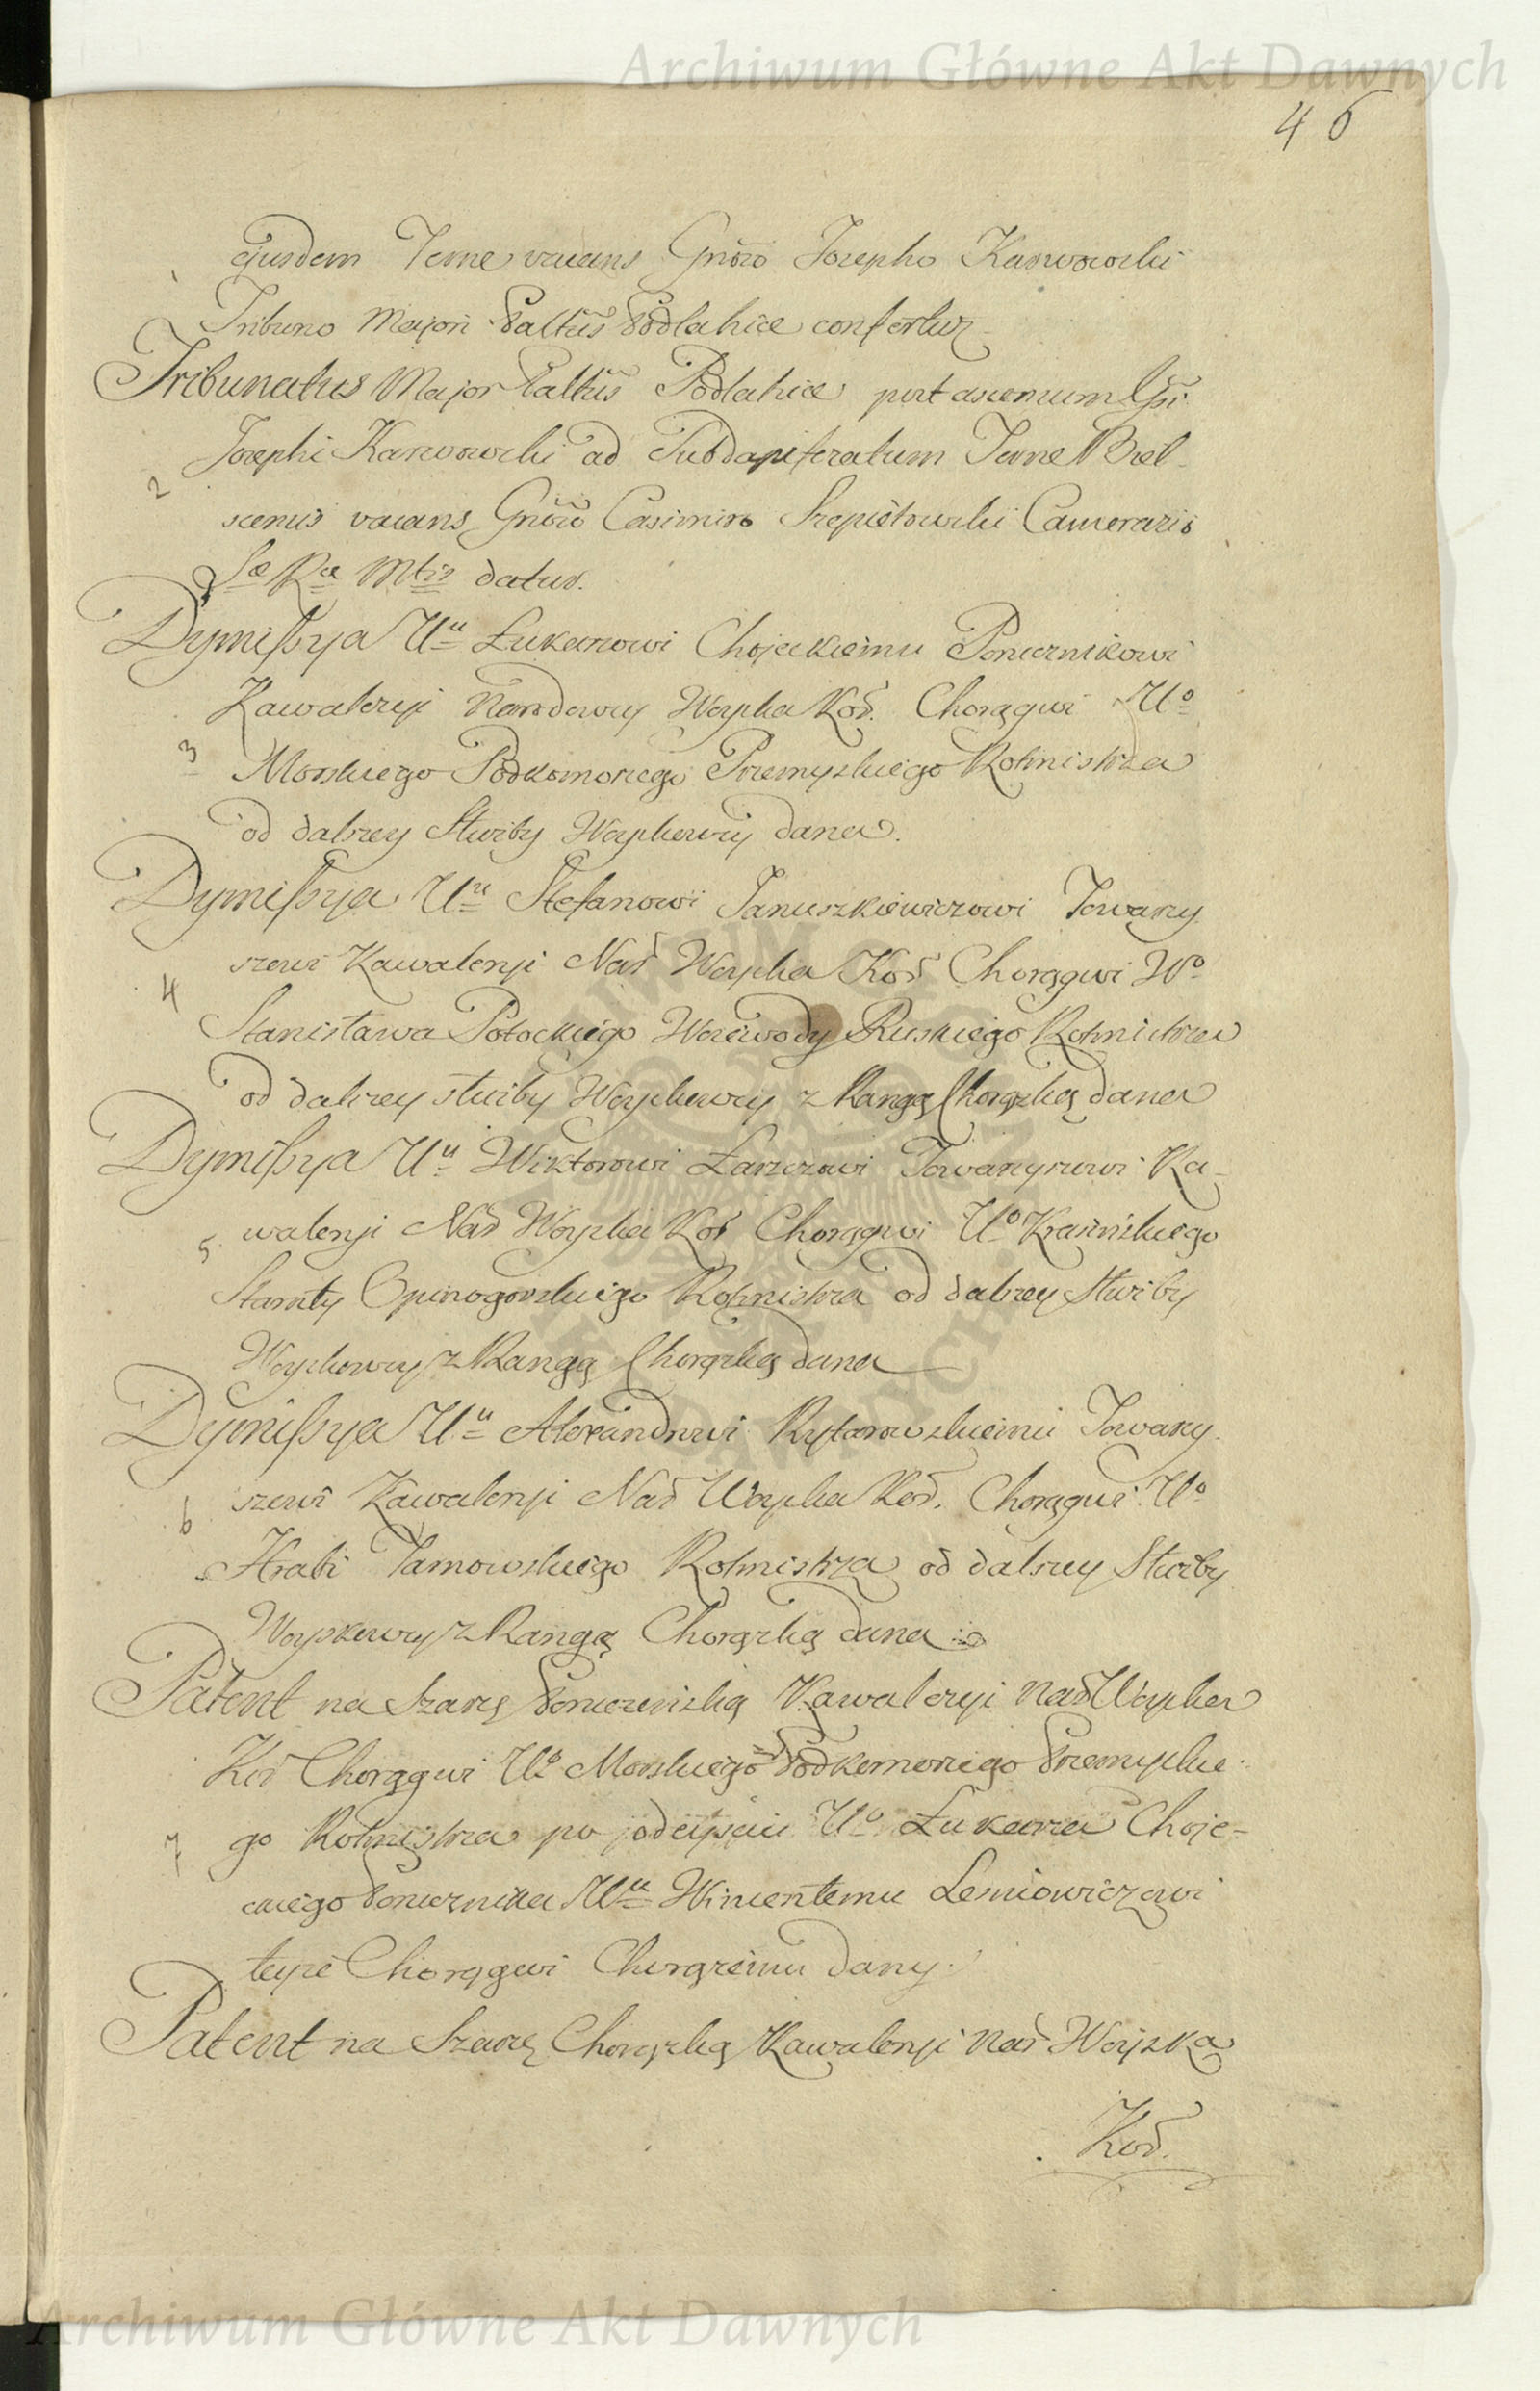 Archiwum Główne Akt Dawnych
46
ejusdem Terrae vacans Gnõso Josepho Karwowski
1
Tribuno Majori Paltũs Podlahiæ confertur
Tribunatus Major Paltũs Podlahiæ post ascensum Gsi
Josephi Karwowski ad Subdapiferatum Terræ Biel-
2
scensis vacans Gnõso Casimiro Szepietowski Camerario
Sæ Ræ Mtis datus.
Dymissya Uu Łukaszowi Chojeckiemu Porucznikowi
Kawaleryi Narodowey Woyska Kor. Chorągwi Uo
3
Morskiego Podkomorzego Przemyskiego Rotmistrza
od dalszey Służby Woyskowey dana.
Dymissya Uu Stefanowi Januszkiewiczowi Towarzy
szowi Kawaleryi Nar Woyska Kor Chorągwi Wo
4
Stanisława Potockiego Woiewody Ruskiego Rotmistrza
od dalszey służby Woyskowey z Rangą Chorążką dana
Dymissya Uu Wiktorowi Łaszczowi Towarzyszowi Ka-
waleryi Nar Woyska Kor Chorągwi Uo Krasińskiego
5
Starosty Opinogorskiego Rotmistrza od dalszey Służby
Woyskowey z Rangą Chorążką dana
Dymissya Uu Alexandrowi Rytarowskiemu Towarzy.
szowi Kawaleryi Nar Woyska Kor. Chorągwi Uo
6
Hrabi Tarnowskiego Rotmistrza od dalszey Służby
Woyskowey z Rangą Chorążką dana
Patent na Szarżę Poruczniską Kawaleryi Nar Woyska
Kor Chorągwi Uo Morskiego Podkomorzego Przemyskie-
go Rotmistrza po odeyściu Uo Łukasza Choje-
7
ckiego Porucznika Uu Wincentemu Leniowiczowi
teyże Chorągwi Chorążemu dany.
Patent na Szarżę Chorążką Kawaleryi Nar Woyska
Kor.
Archiwum Główne Akt Dawnych